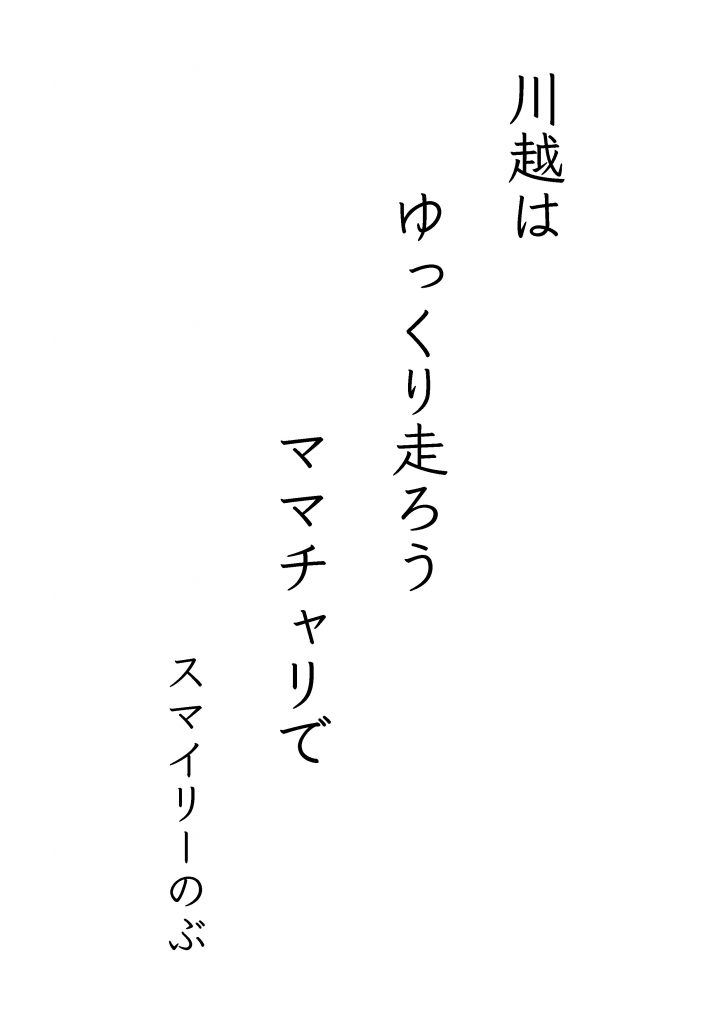 川越は
ゆっくり走ろう
ママチャリで
スマイリーのぶ